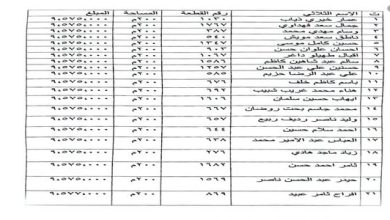 ت الاسم الثلاثي رقم القطعة المساحة المبلغ
١ عمار خيري ذياب ١٠٣٠ ٢٠٠م ٩،٥٧٥،٠٠٠
٢ جمال سعد فهداوي ٧٦٧ ٢٠٠م ٩،٥٧٥،٠٠٠
٣ وسام مهدي محمد ٣٨٧ ٢٠٠م ٩،٥٧٥،٠٠٠
٤ ناطق سعد مويش ٥٤٠ ٢٠٠م ٩،٥٧٥،٠٠٠
٥ حسين كامل موسى ١٣٤٧ ٢٠٠م ٩،٥٧٥،٠٠٠
٦ احسان علوان حسن ٢٠٠م ٩،٥٧٥،٠٠٠
٧ اقبال ٢٠٠م ٩،٥٧٥،٠٠٠
٨ سالم عبد شاهين كاظم ٥٨٦ ٢٠٠م ٩،٥٧٥،٠٠٠
٩ حسنين علي عبد الحسن ٢٠٠م ٩،٥٧٥،٠٠٠
١٠ علي عبد الرضا حزيم ٥٨٥ ٢٠٠م ٩،٥٧٥،٠٠٠
١١ باسم كاظم خلف ٦٧٦ ٢٠٠م ٩،٥٧٥،٠٠٠
١٢ هناء محمد غريب شبيب ٦٩٢ ٢٠٠م ٩،٥٧٥،٠٠٠
١٣ ايهاب حسين سلمان ٦١٠ ٢٠٠م ٩،٥٧٥،٠٠٠
١٤ محمد جاسم بخت روضان ٦٧٠ ٢٠٠م ٩،٥٧٥،٠٠٠
١٥ وليد ناصر رديف ربيع ٦٥٧ ٢٠٠م ٩،٥٧٥،٠٠٠
١٦ احمد سلام حسين ٦٤٤ ٢٠٠م ٩،٥٧٥،٠٠٠
١٧ العباس عبد الامير محمد ٦٣٨ ٢٠٠م ٩،٥٧٥،٠٠٠
١٨ زياد ماجد هادي ٢٧٦ ٢٠٠م ٩،٥٧٥،٠٠٠
١٩ ثامر احمد حسن ١٦٨٢ ٢٠٠م ٩،٥٧٥،٠٠٠
٢٠ حيدر عبد الحسن ناصر ١٥٦٩ ٢٠٠م ٩،٥٧٥،٠٠٠
٢١ افراح ثامر عبيد ٨٦٩ ٢٠٠م ٩،٥٧٧،٠٠٠